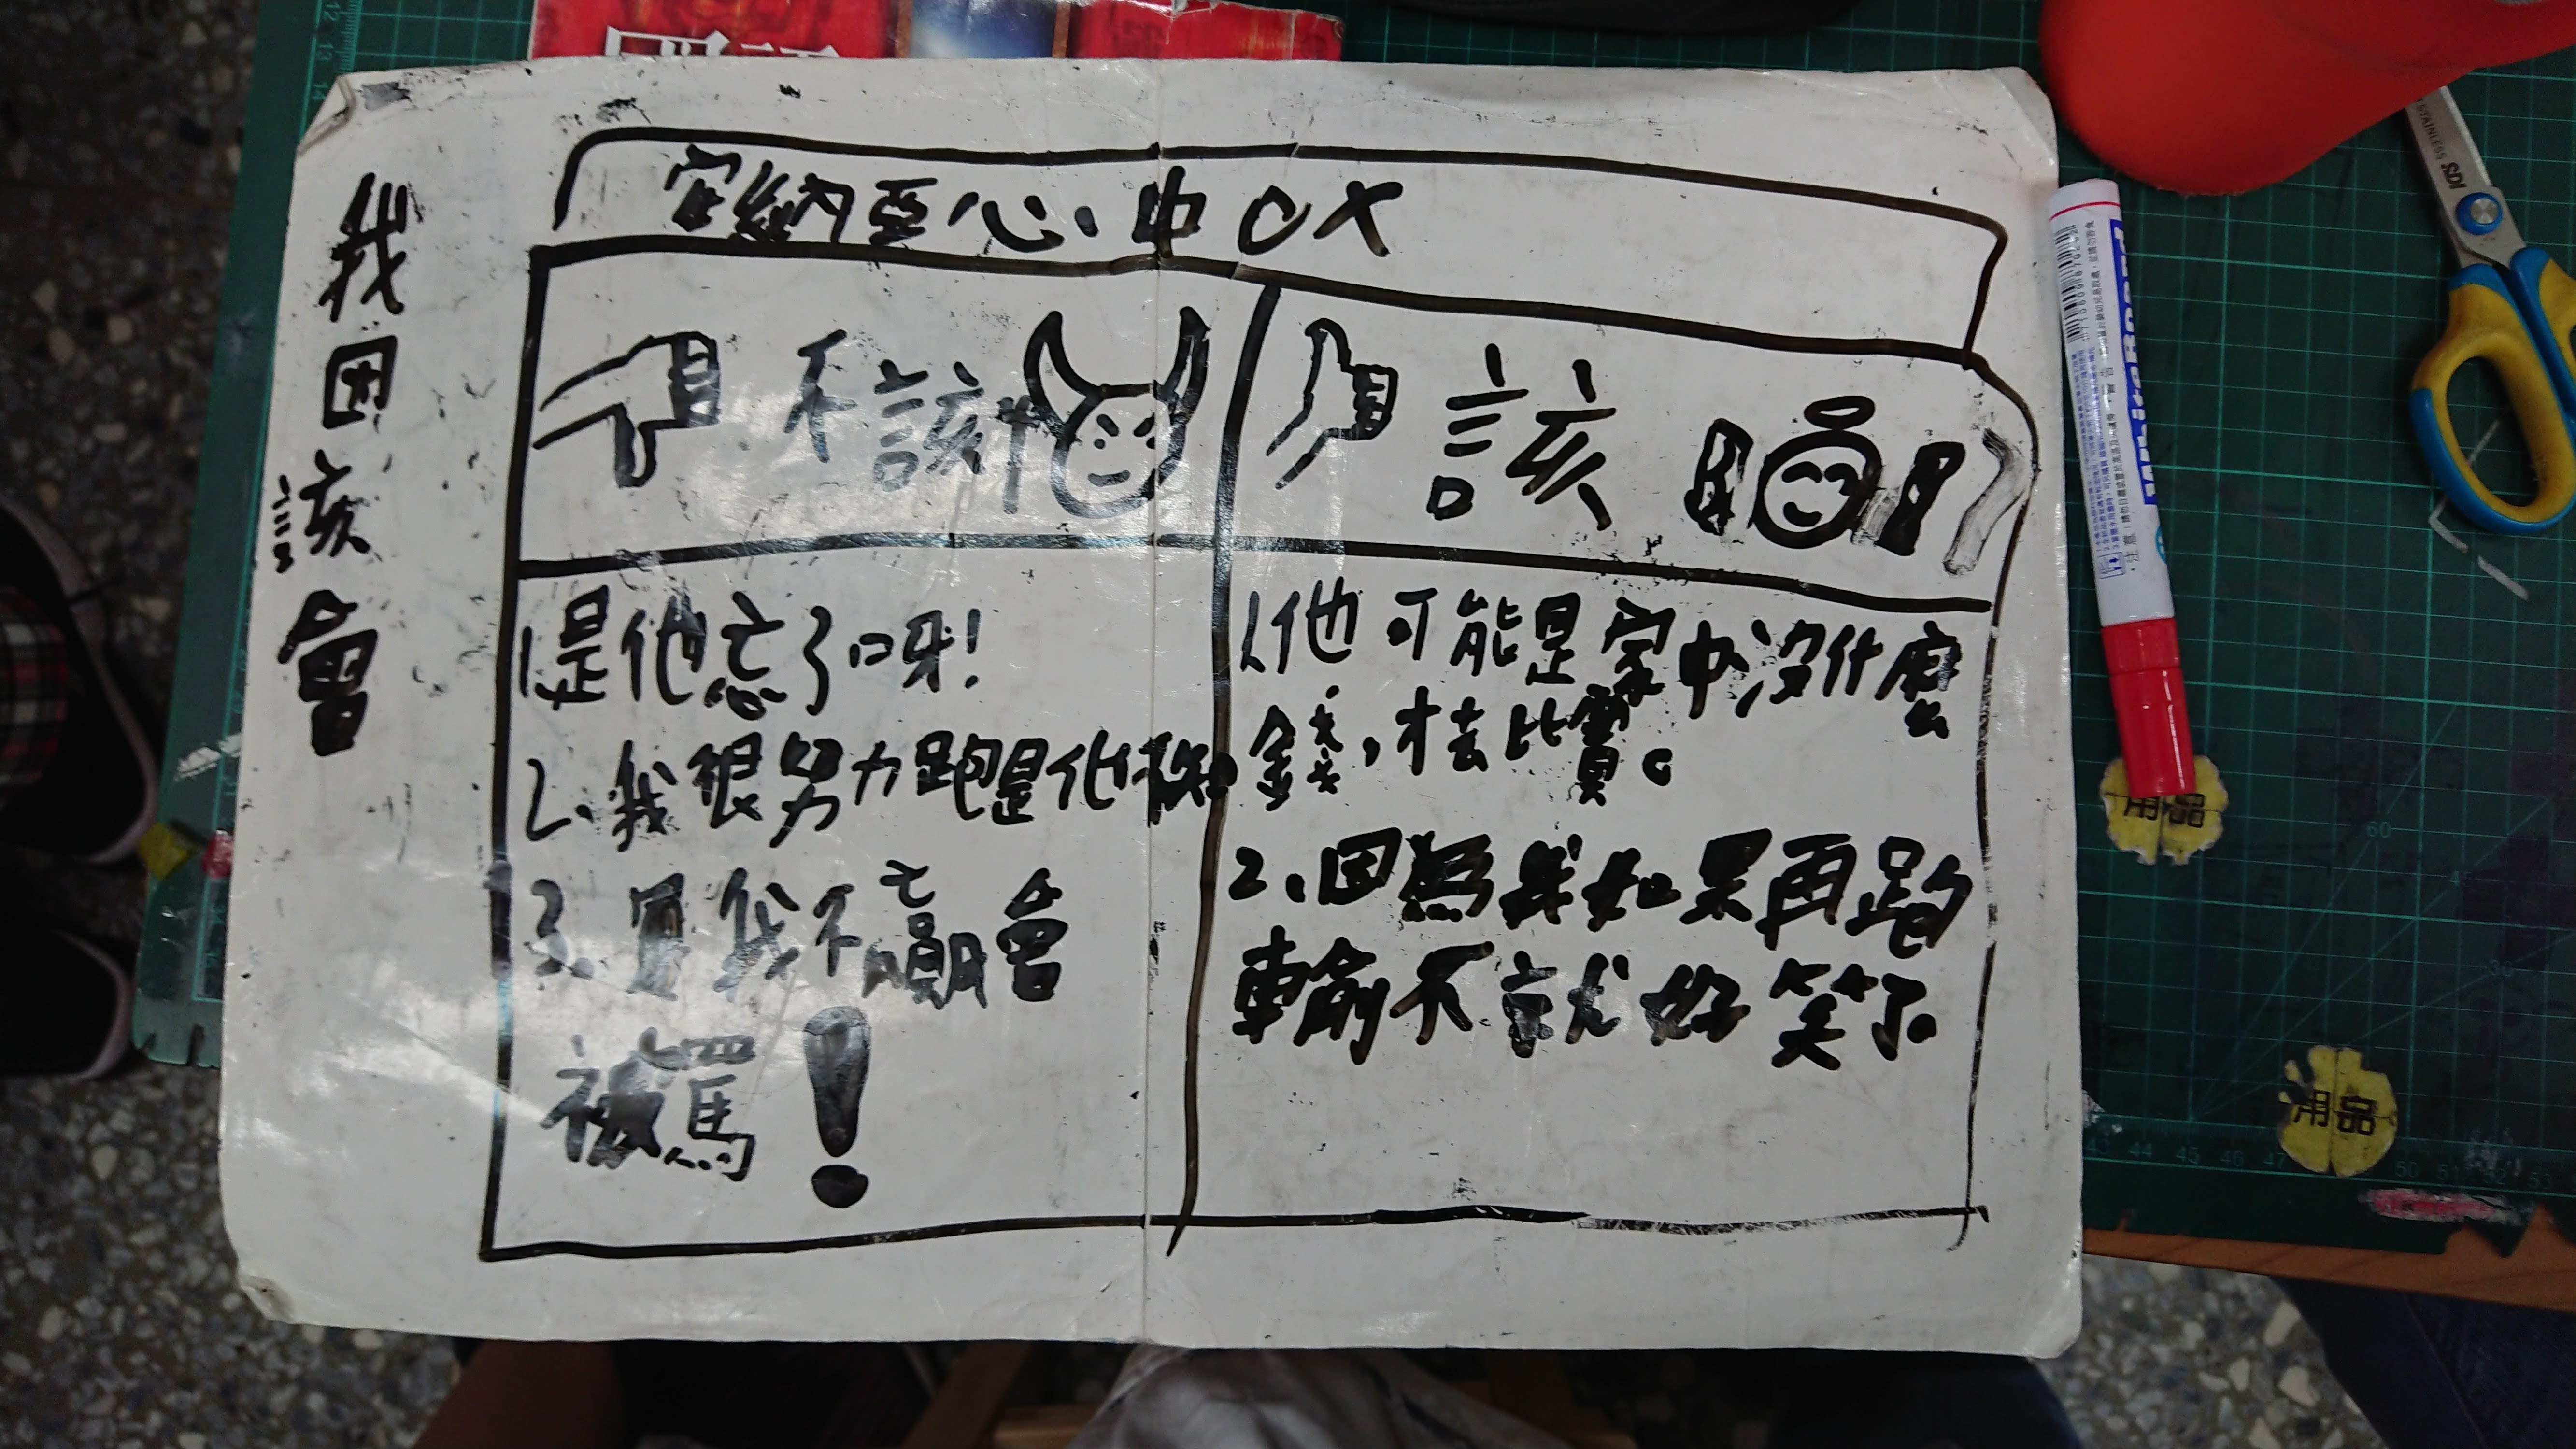 安納亞心中OX
我因該會
不該
該
1.是他忘了呀!
2.我很努力跑是他不知
3.是我不贏會
被罵!
1.他可能是家中沒什麼
錢,才去比賽。
2、因為我如果再跑
輸不就好笑了。
WhiteBoard
STAINLESS SDI
用品
用品